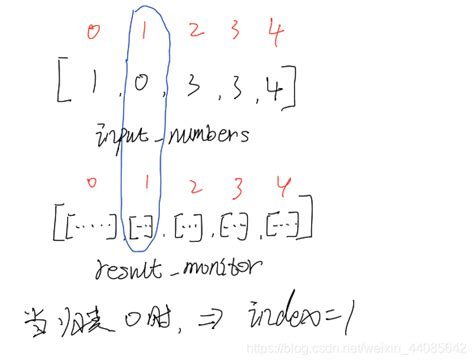 0 1 2 3 4
[1,0,3,3,4]
input_numbers
0 1 2 3 4
[[.....],[...],[...],[...],[...]]
result_monitor
当归麦 0时, ⇒ index=1
https://blog.csdn.net/weixin_44085642